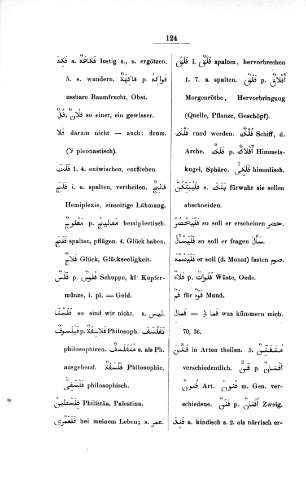 124
فَكَهَ a. فُكَاهَة lustig s., u. ergötzen.
5. s. wundern. فَاكِهَة p. فَوَاكِه
essbare Baumfrucht, Obst.
فُلَان, فُلُ so einer, ein gewisser.
فَلَا darum nicht — auch: dram.
(لا pleonastisch).
فَلَتَ 1. 4. entwischen, entfliehen.
فَلَجَ i. u. spalten, vertheilen. فَالِج
Hemiplexie, einseitige Lähmung.
مَفْلُوج p. مَفَالِيج hemiplectisch.
فَلَحَ spalten, pflügen. 4. Glück haben.
فَلَاح Glück, Glückseeligkeit.
فَلْس p. فُلُوس Schuppe, kl. Kupfer-
münze, i. pl. = Geld.
فَلَسْنَا so sind wir nicht. s. ليس.
فَيْلَسُوف p. فَلَاسِفَة Philosoph. تَفَلْسَفَ
philosophiren. مُتَفَلْسِف s. als Ph.
ausgebend. فَلْسَفَة Philosophie.
فَلْسَفِيّ philosophisch.
فِلَسْطِين Philistäa, Palestina.
فَلَعَمْرِي bei meinem Leben; s. عمر.
فَلَقَ i. فَلْق spalten, hervorbrechen
1. 7. a. spalten. فَلَق p. أَفْلَاق
Morgenröthe, Hervorbringung
(Quelle, Pflanze, Geschöpf).
فَلَكَ rund werden. فُلْك Schiff, d.
Arche. فَلَك p. أَفْلَاك Himmels-
kugel, Sphäre. فَلَكِيّ himmlisch.
فَلَيُبَتِّكُنَّ s. بتك fürwahr sie sollen
abschneiden.
فَلْيَحْضُرْ so soll er erscheinen حضر.
فَلْيَسْأَلْ so soll er fragen سأل.
فَلْيَصُمْهُ er soll (d. Monat) fasten صوم.
فَلَاة p. فَلَوَات Wüste, Oede.
فَم für فُوه Mund.
فَمَا لِ = فَمَالِ was kümmern mich.
70, 36.
فَنَّنَ in Arten theilen. 5. مُتَفَنِّن
verschiedenlich. فَنّ p. أَفْنَان
فُنُون Art. أَفْنُون m. Gen. ver-
schiedene. فَنَن p. أَفْنَان Zweig.
فَنِدَ a. kindisch s. z. als närrisch er-